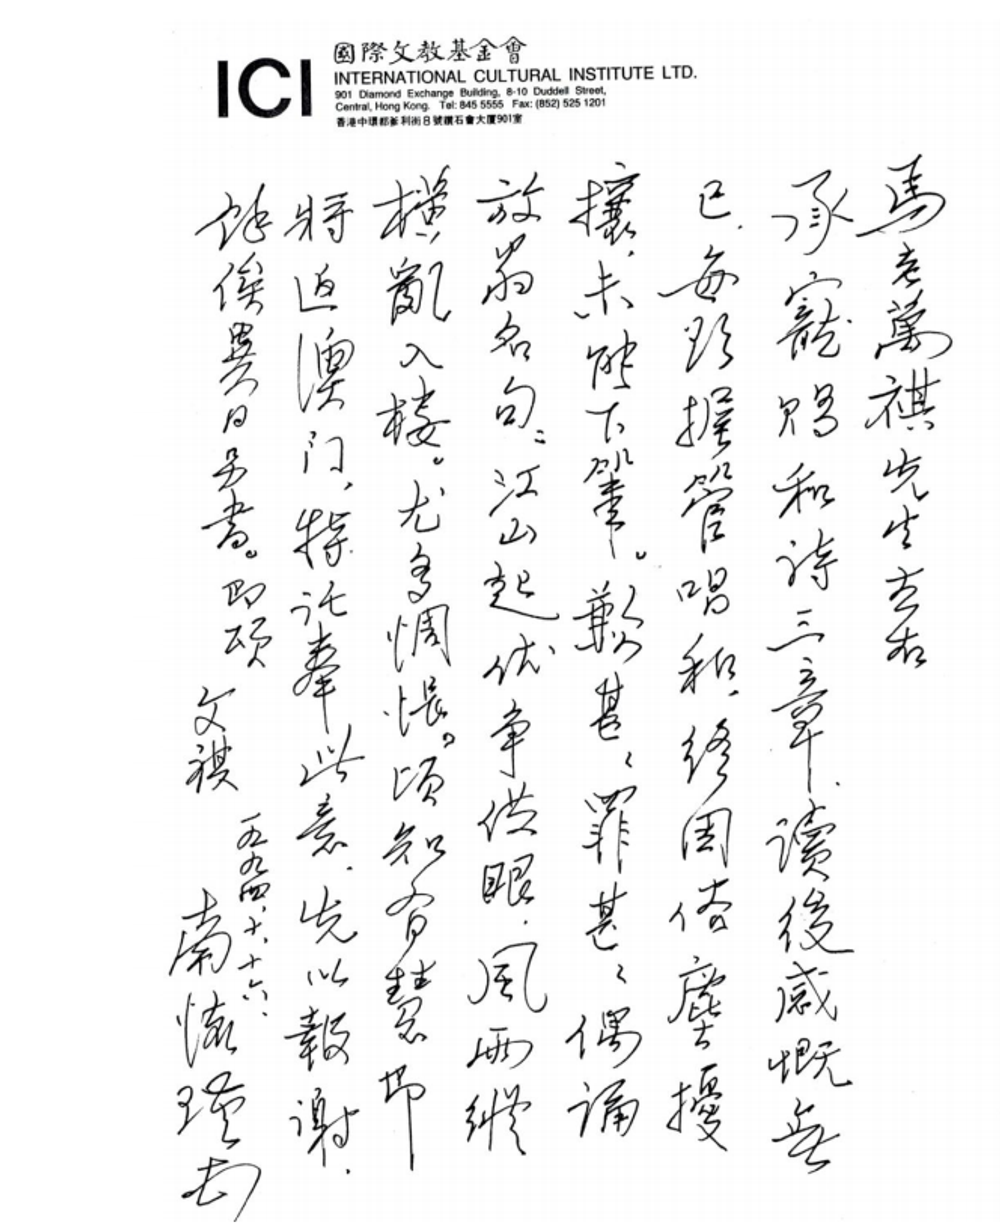 ICI
國際文教基金會
INTERNATIONAL CULTURAL INSTITUTE LTD.
901 Diamond Exchange Building, 8-10 Duddell Street,
Central, Hong Kong. Tel: 845 5555 Fax: (852) 525 1201
香港中環都爹利街8號鑽石會大廈901室
馬老萬祺先生左右
承寵賜和詩三章.讀後感慨無
已.每欲握管唱和.終因俗塵擾
攘.未能下筆。歉甚、罪甚、偶誦
放翁名句:江山起伏爭供眼.風雨縱
橫亂入樓。尤多惆悵。頃知有慧命
將返澳门.特託奉此意.先以報謝.
餘俟異日另書。即頌
文祺
南懷瑾
九四、十、十六、